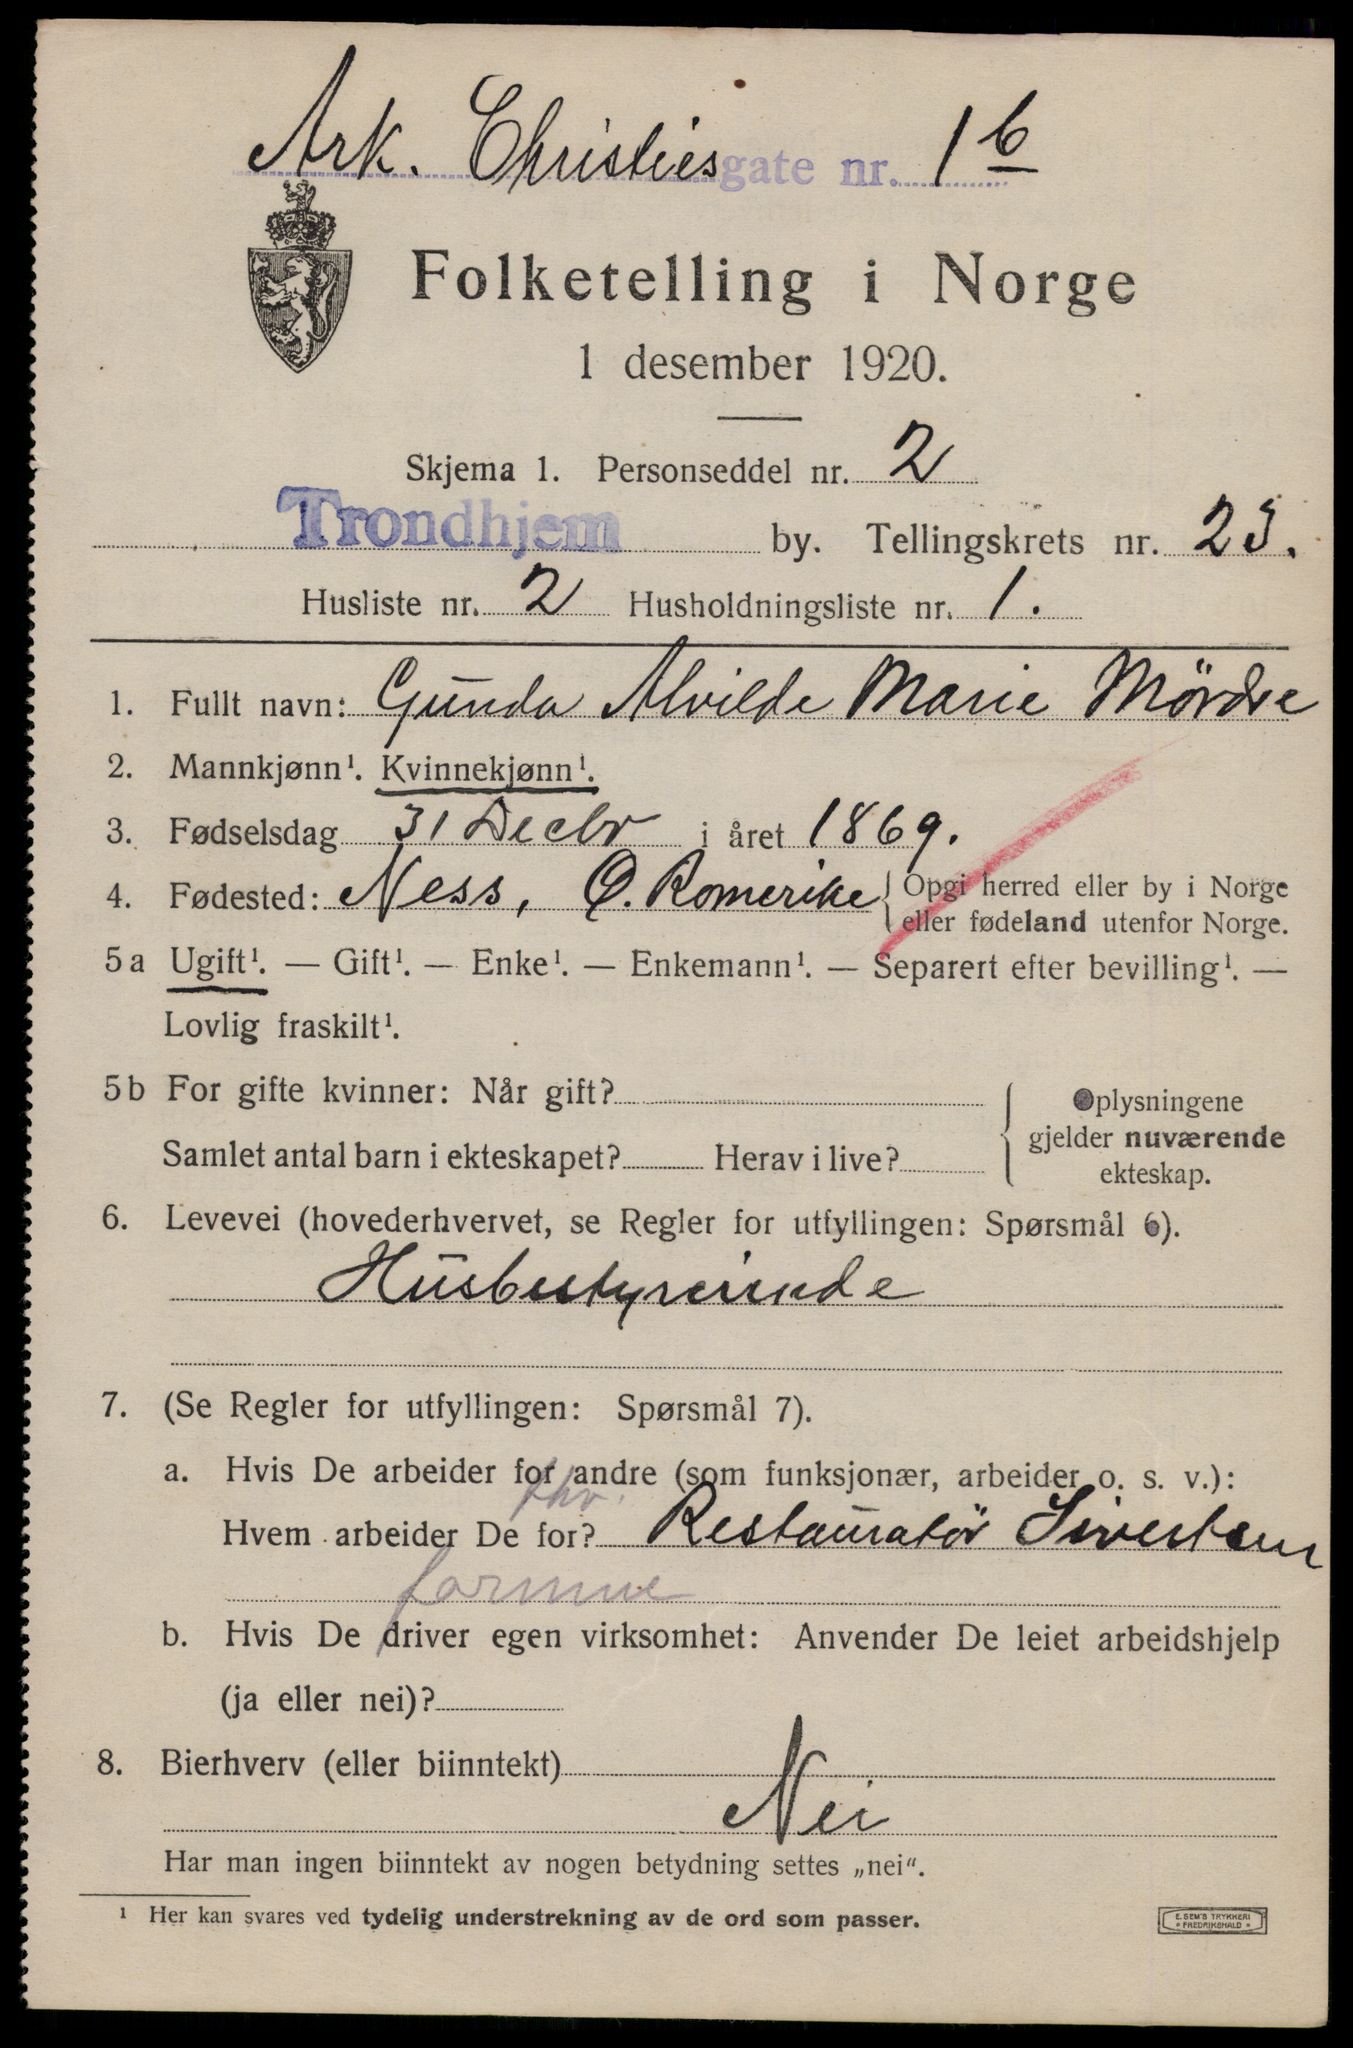 Ark. Christies gate nr. 1b
Folketelling i Norge
1 desember 1920.
Skjema 1. Personseddel nr. 2
Trondhjem by. Tellingskrets nr. 23.
Husliste nr. 2 Husholdningsliste nr. 1.
1. Fullt navn: Gunda Alvilde Marie Mördre
2. Mannkjønn¹. Kvinnekjønn¹.
3. Fødselsdag 31 Decbr i året 1869.
4. Fødested: Ness, Ø. Romerike { Opgi herred eller by i Norge
eller fødeland utenfor Norge.
5a Ugift¹. — Gift¹. — Enke¹. — Enkemann¹. — Separert efter bevilling¹. —
Lovlig fraskilt¹.
5b For gifte kvinner: Når gift?
Samlet antal barn i ekteskapet? Herav i live?
{ Oplysningene
gjelder nuværende
ekteskap.
6. Levevei (hovederhvervet, se Regler for utfyllingen: Spørsmål 6).
Husbestyrerinde
7. (Se Regler for utfyllingen: Spørsmål 7).
a. Hvis De arbeider for andre (som funksjonær, arbeider o. s. v.):
Hvem arbeider De for? Restauratör Sivertsen
b. Hvis De driver egen virksomhet: Anvender De leiet arbeidshjelp
(ja eller nei)?
8. Bierhverv (eller biinntekt)
Nei
Har man ingen biinntekt av nogen betydning settes „nei“.
¹ Her kan svares ved tydelig understrekning av de ord som passer.
E. SEM'S TRYKKERI
* FREDRIKSHALD *